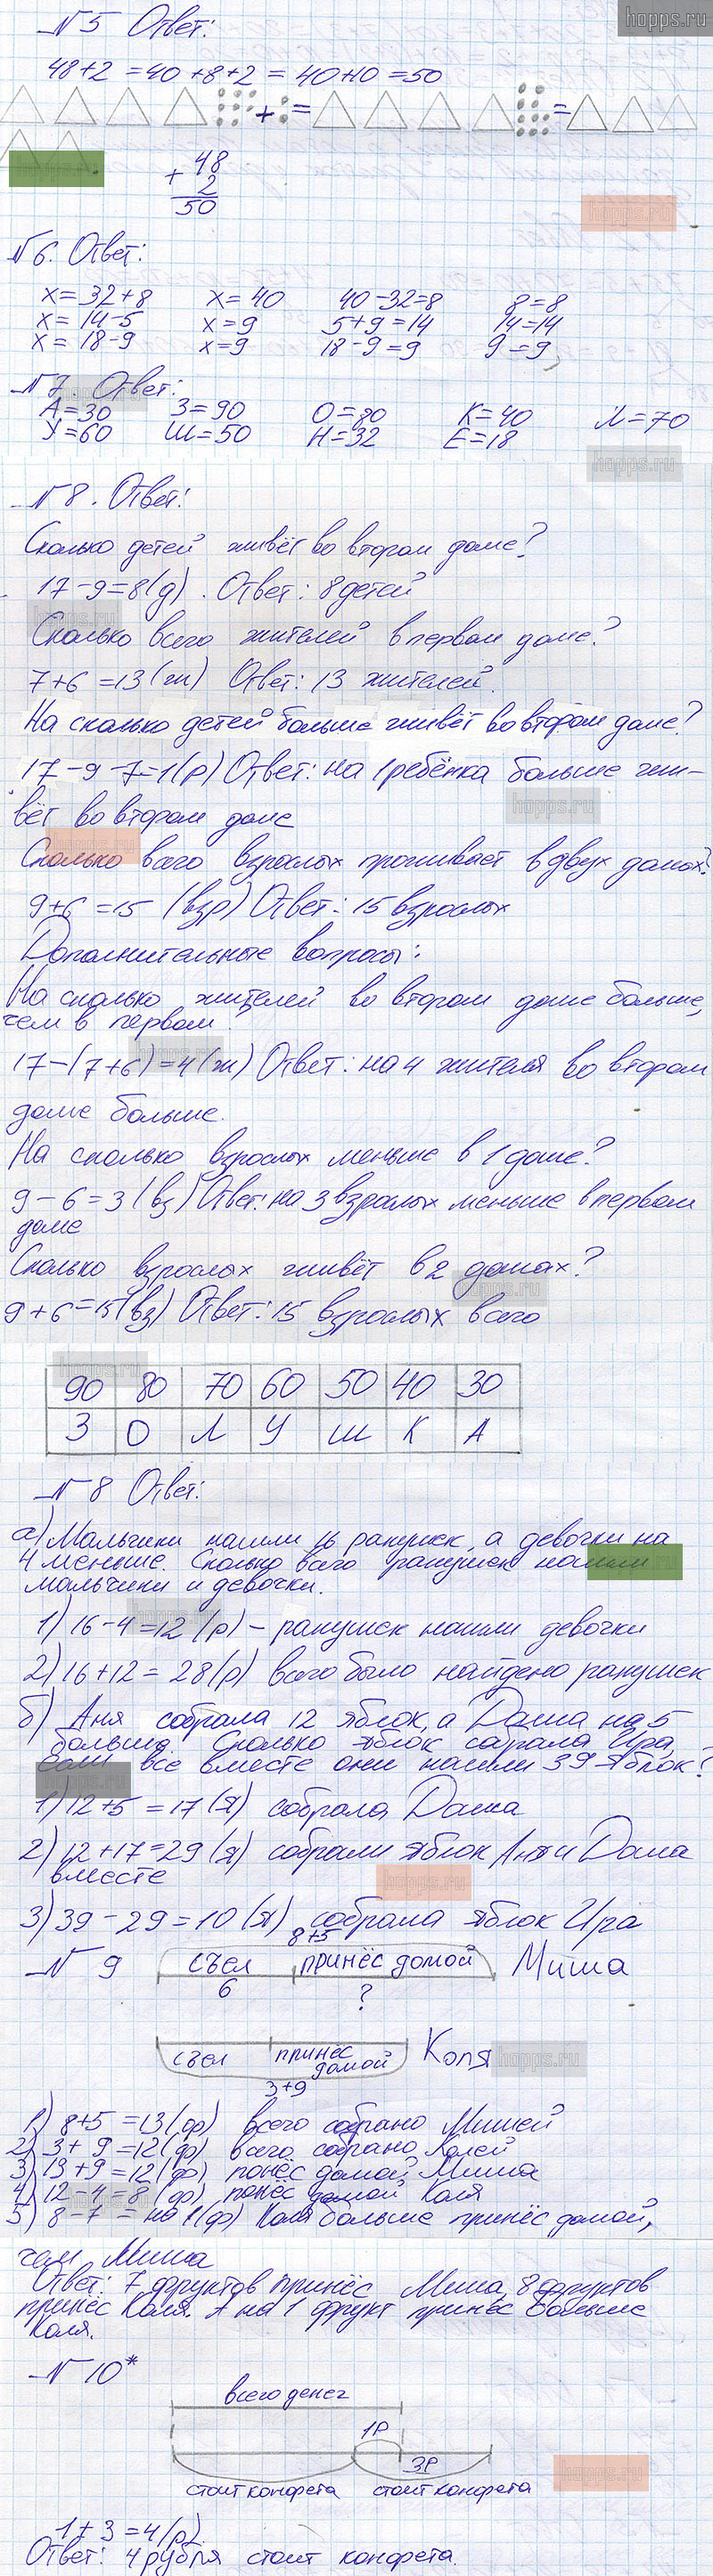 hopps.ru
№5 Ответ:
48+2 =40 +8+2 = 40+10 =50
+ = =
+ 48
2
50
hopps.ru
№6. Ответ:
x= 32+8 x= 40 40-32=8 8=8
x= 14-5 x=9 5+9=14 14=14
x= 18-9 x=9 18-9=9 9=9
№7. Ответ:
А=30 З=90 О=80 К=40 Л=70
У=60 Ш=50 Н=32 Е=18
hopps.ru
№8. Ответ:
Сколько детей живёт во втором доме?
17-9=8(д). Ответ: 8 детей
hopps.ru
Сколько всего жителей в первом доме?
7+6 =13(ж) Ответ: 13 жителей.
На сколько детей больше живёт во втором доме?
17-9-7=1(р) Ответ: на 1 ребёнка больше жи-
hopps.ru
вёт во втором доме
Сколько всего взрослых проживает в двух домах?
9+6 =15 (взр) Ответ: 15 взрослых
Дополнительные вопросы:
На сколько жителей во втором доме больше,
чем в первом?
17-(7+6)=4(ж) Ответ: на 4 жителя во втором
доме больше.
На сколько взрослых меньше в 1 доме?
9-6=3(вз) Ответ: на 3 взрослых меньше в первом
доме
Сколько взрослых живёт в 2 домах?
hopps.ru
9+6=15(вз) Ответ: 15 взрослых всего
90 80 70 60 50 40 30
З О Л У Ш К А
№8 Ответ:
а) Мальчики нашли 16 ракушек, а девочки на
4 меньше. Сколько всего ракушек нашли
мальчики и девочки.
1) 16-4=12(р) - ракушек нашли девочки
2) 16+12= 28(р) всего было найдено ракушек
б) Аня собрала 12 яблок, а Даша на 5
больше. Сколько яблок собрала Ира,
если все вместе они нашли 39 яблок?
1) 12+5 =17(я) собрала Даша
2) 12+17=29(я) собрали яблок Аня и Даша
вместе
hopps.ru
3) 39-29=10(я) собрала яблок Ира
8+5
№9 съел принёс домой Миша
6 ?
съел принёс домой Коля
hopps.ru
3+9
1) 8+5 =13(ф) всего собрано Мишей
2) 3+9=12(ф) всего собрано Колей
3) 13+9=12(ф) понёс домой Миша
4) 12-4=8(ф) понёс домой Коля
5) 8-7= на 1(ф) Коля больше принёс домой,
чем Миша
Ответ: 7 фруктов принёс Миша, 8 фруктов
принёс Коля. А на 1 фрукт принёс больше
Коля.
№10*
всего денег
1р
3р
hopps.ru
стоит конфета стоит конфета
1+3=4(р)
Ответ: 4 рубля стоит конфета.